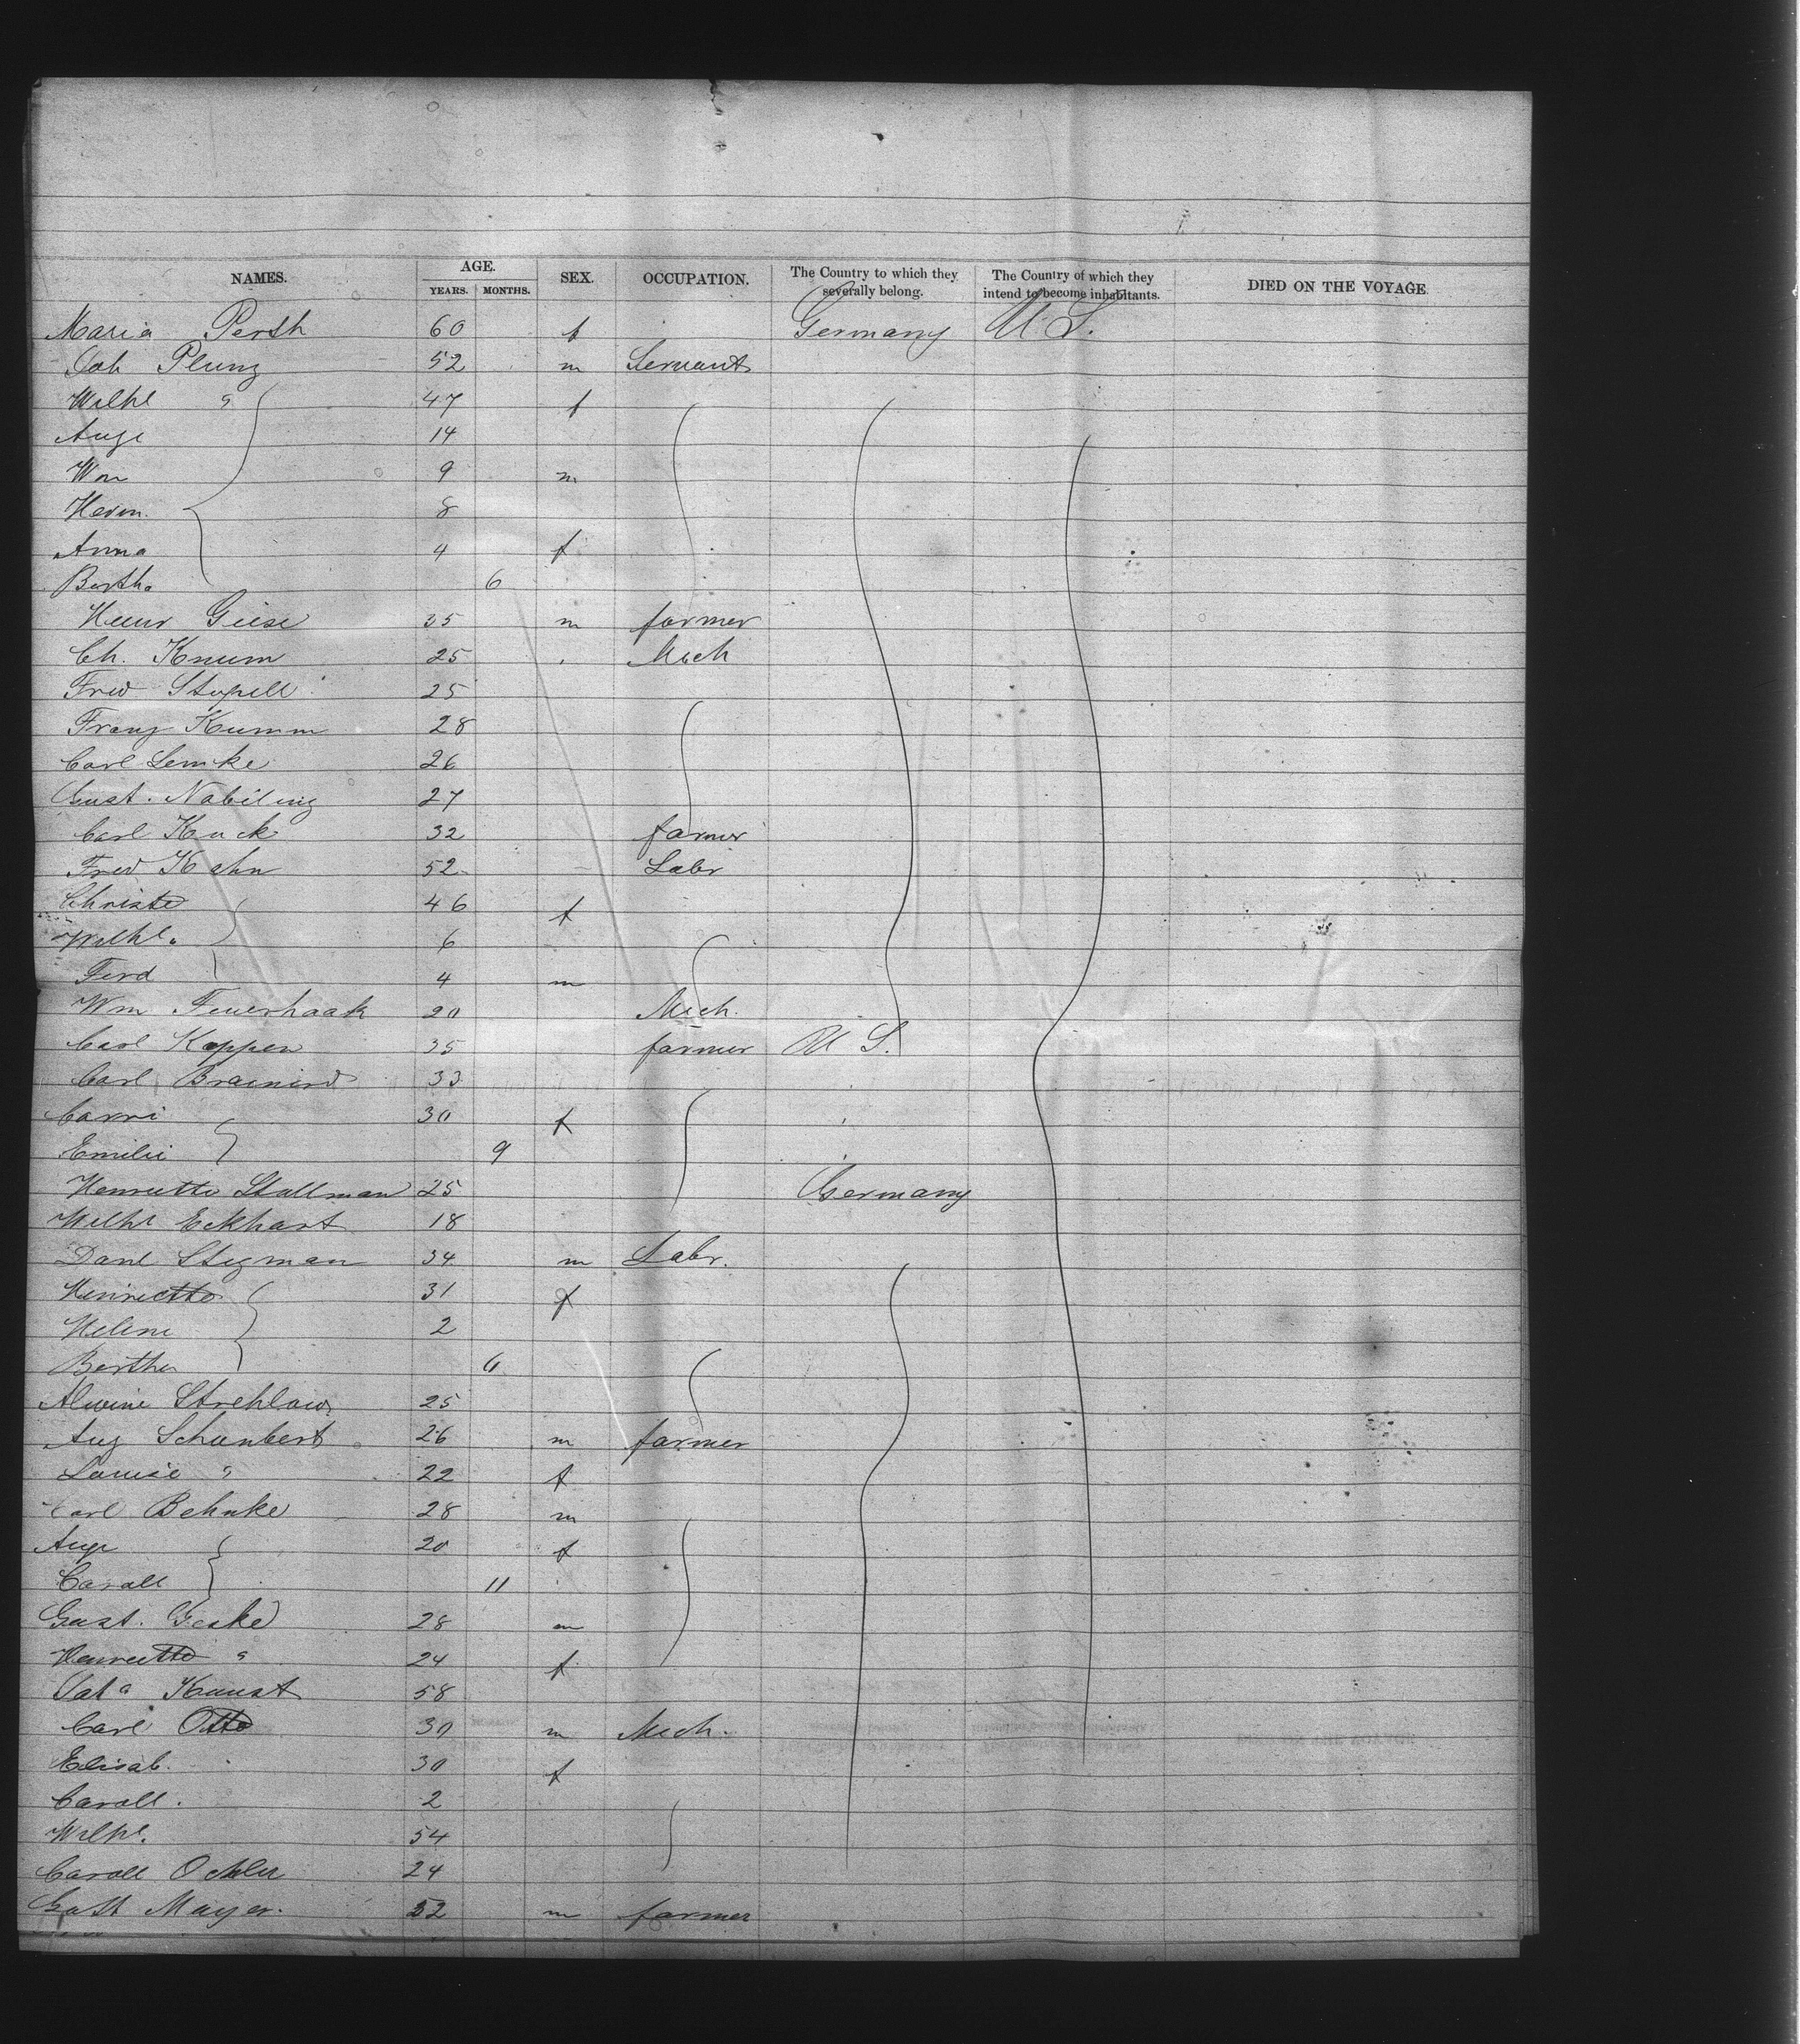 NAMES. AGE. SEX. OCCUPATION. The Country to which they severally belong. The Country of which they intend to become inhabitants. DIED ON THE VOYAGE.
YEARS. MONTHS.
Maria Persh 60 f Germany U.S.
Joh Plunz 52 m Servant
Wilhl " 47 f
Auge 14
Wm 9 m
Herm. 8
Anna 4 f
Bertha 6
Heinr Giese 35 m farmer
Ch. Knum 25 Mech
Fred Stapell 25
Franz Kumm 28
Carl Lemke 26
Gust. Nabiling 27
Carl Kuck 32 farmer
Fred Kahn 52 Labr
Christe 46 f
Wilhl. 6
Ferd 4 m
Wm Feuerhaak 20 Mech.
Carl Koppen 35 farmer U S.
Carl Brainird 33
Carri 30 f
Emilie 9
Henriette Stallman 25 Germany
Wilhl Eckhart 18
Danl Stegman 34 m Labr.
Henriette 31 f
Helene 2
Bertha 6
Alwine Strehlow 25
Aug Schunbert 26 m farmer
Louise " 22 f
Carl Behnke 28 m
Auge 20 f
Caroll 11
Gust. Geske 28 m
Henriette " 24 f
Kunst 58
Carl Otto 30 m Mech.
Elisab. 30 f
Caroll. 2
Wilhl. 54
Caroll Oehler 24
Gott Mayer. 52 m farmer